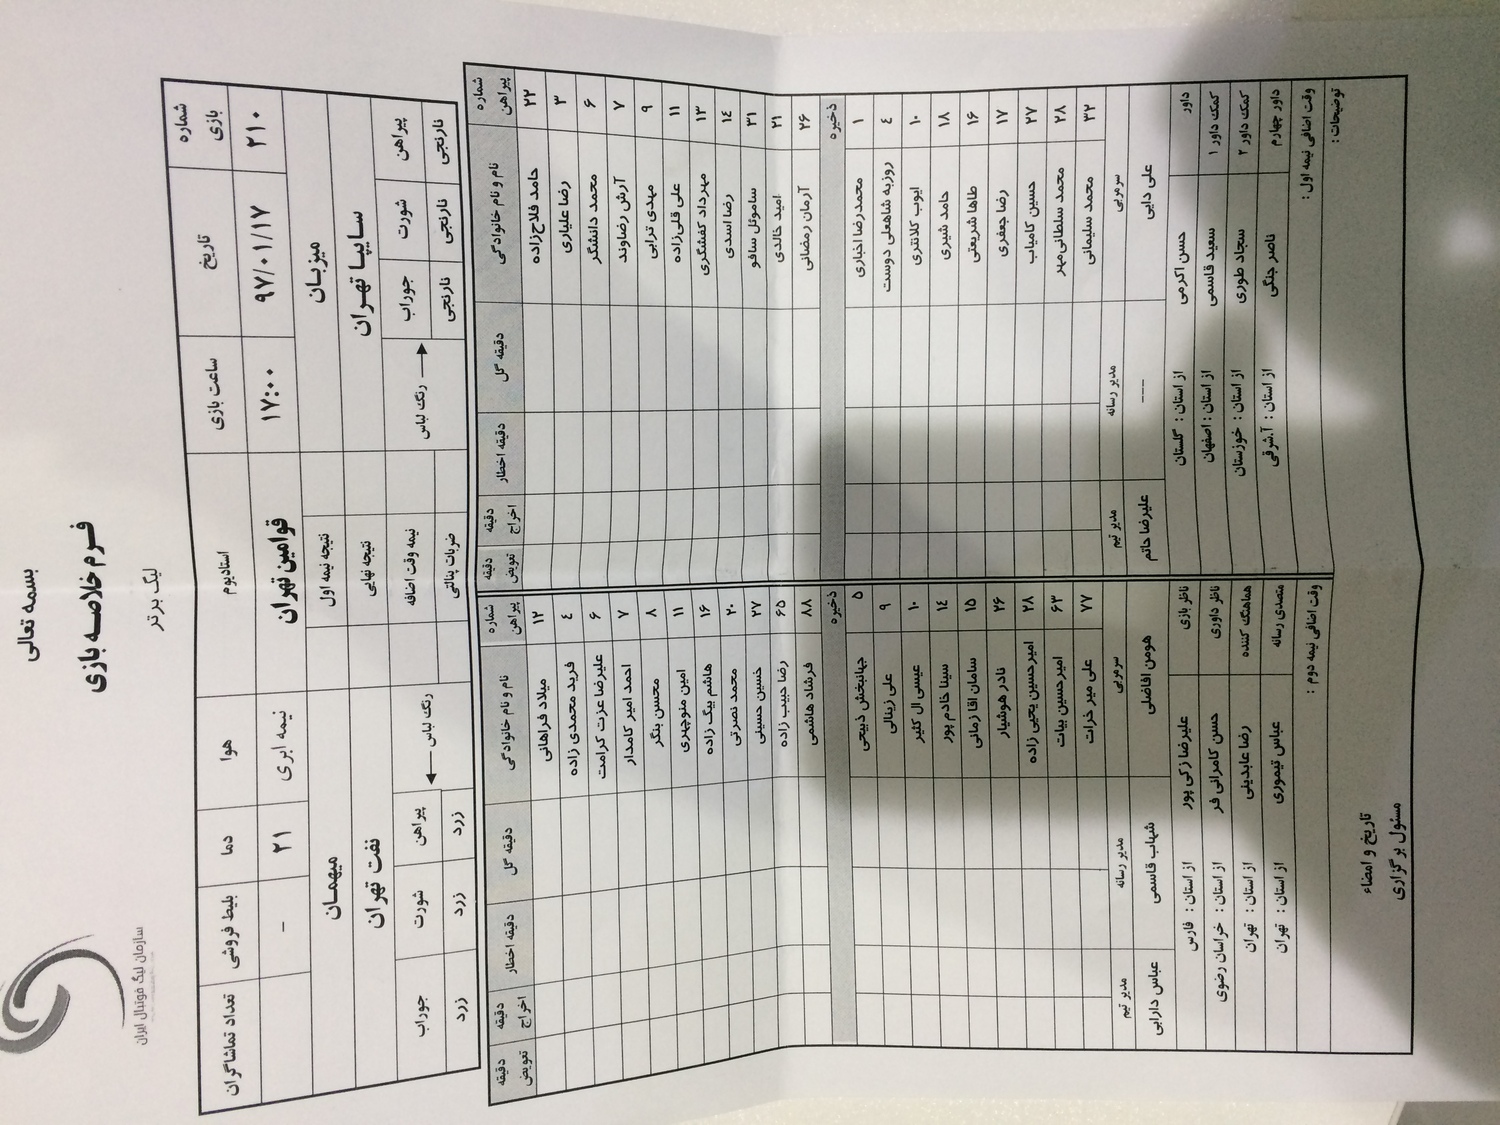 بسمه تعالی
فـرم خلاصـه بازی
لیگ برتر
سازمان لیگ فوتبال ایران
شماره بازی تاریخ ساعت بازی استادیوم هوا دما بلیط فروشی تعداد تماشاگران
۲۱۰ ۹۷/۰۱/۱۷ ۱۷:۰۰ قوامین تهران نیمه ابری ۲۱ -
میزبـان نتیجه نیمه اول میهمـان
سـایپـا تهـران نتیجه نهایی نفت تهران
پیراهن شورت جوراب رنگ لباس نیمه وقت اضافه رنگ لباس پیراهن شورت جوراب
نارنجی نارنجی نارنجی ضربات پنالتی زرد زرد زرد
شماره پیراهن نام و نام خانوادگی دقیقه گل دقیقه اخطار دقیقه اخراج دقیقه تعویض شماره پیراهن نام و نام خانوادگی دقیقه گل دقیقه اخطار دقیقه اخراج دقیقه تعویض
۲۲ حامد فلاح‌زاده ۱۲ میلاد فراهانی
۳ رضا علیاری ٤ فرید محمدی زاده
۶ محمد دانشگر ۶ علیرضا عزت کرامت
۷ آرش رضاوند ۷ احمد امیر کامدار
۹ مهدی ترابی ۸ محسن بنگر
۱۱ علی قلی‌زاده ۱۱ امین منوچهری
۱۳ مهرداد کفشگری ۱۶ هاشم بیگ زاده
۱٤ رضا اسدی ۲۰ محمد نصرتی
۳۱ ساموئل سافو ۲۷ حسین حسینی
۲۱ امید خالدی ۶۵ رضا حبیب زاده
۲۶ آرمان رمضانی ۸۸ فرشاد هاشمی
ذخیره ذخیره
۱ محمدرضا اخباری ۵ جهانبخش ذبیحی
٤ روزبه شاهعلی دوست ۹ علی زینالی
۱۰ ایوب کلانتری ۱۰ عیسی ال کثیر
۱۸ حامد شیری ۱٤ سینا خادم پور
۱۶ طاها شریعتی ۱۵ سامان اقا زمانی
۱۷ رضا جعفری ۲۶ نادر هوشیار
۲۷ حسین کامیاب ۲۸ امیرحسین یحیی زاده
۲۸ محمد سلطانی‌مهر ۶۳ امیرحسین بیات
۳۲ محمد سلیمانی ۷۷ علی میر خرات
سرمربی مدیر رسانه مدیر تیم سرمربی مدیر رسانه مدیر تیم
علی دایی --- علیرضا حاتم هومن افاضلی شهاب قاسمی عباس دارابی
داور حسن اکرمی از استان : گلستان ناظر بازی علیرضا زکی پور از استان : فارس
کمک داور ۱ سعید قاسمی از استان : اصفهان ناظر داوری حسن کامرانی فر از استان : خراسان رضوی
کمک داور ۲ سجاد طوری از استان : خوزستان هماهنگ کننده رضا عابدینی از استان : تهران
داور چهارم ناصر جنگی از استان : آ.شرقی متصدی رسانه عباس تیموری از استان : تهران
وقت اضافی نیمه اول : وقت اضافی نیمه دوم :
توضیحات :
تاریخ و امضاء
مسئول برگزاری